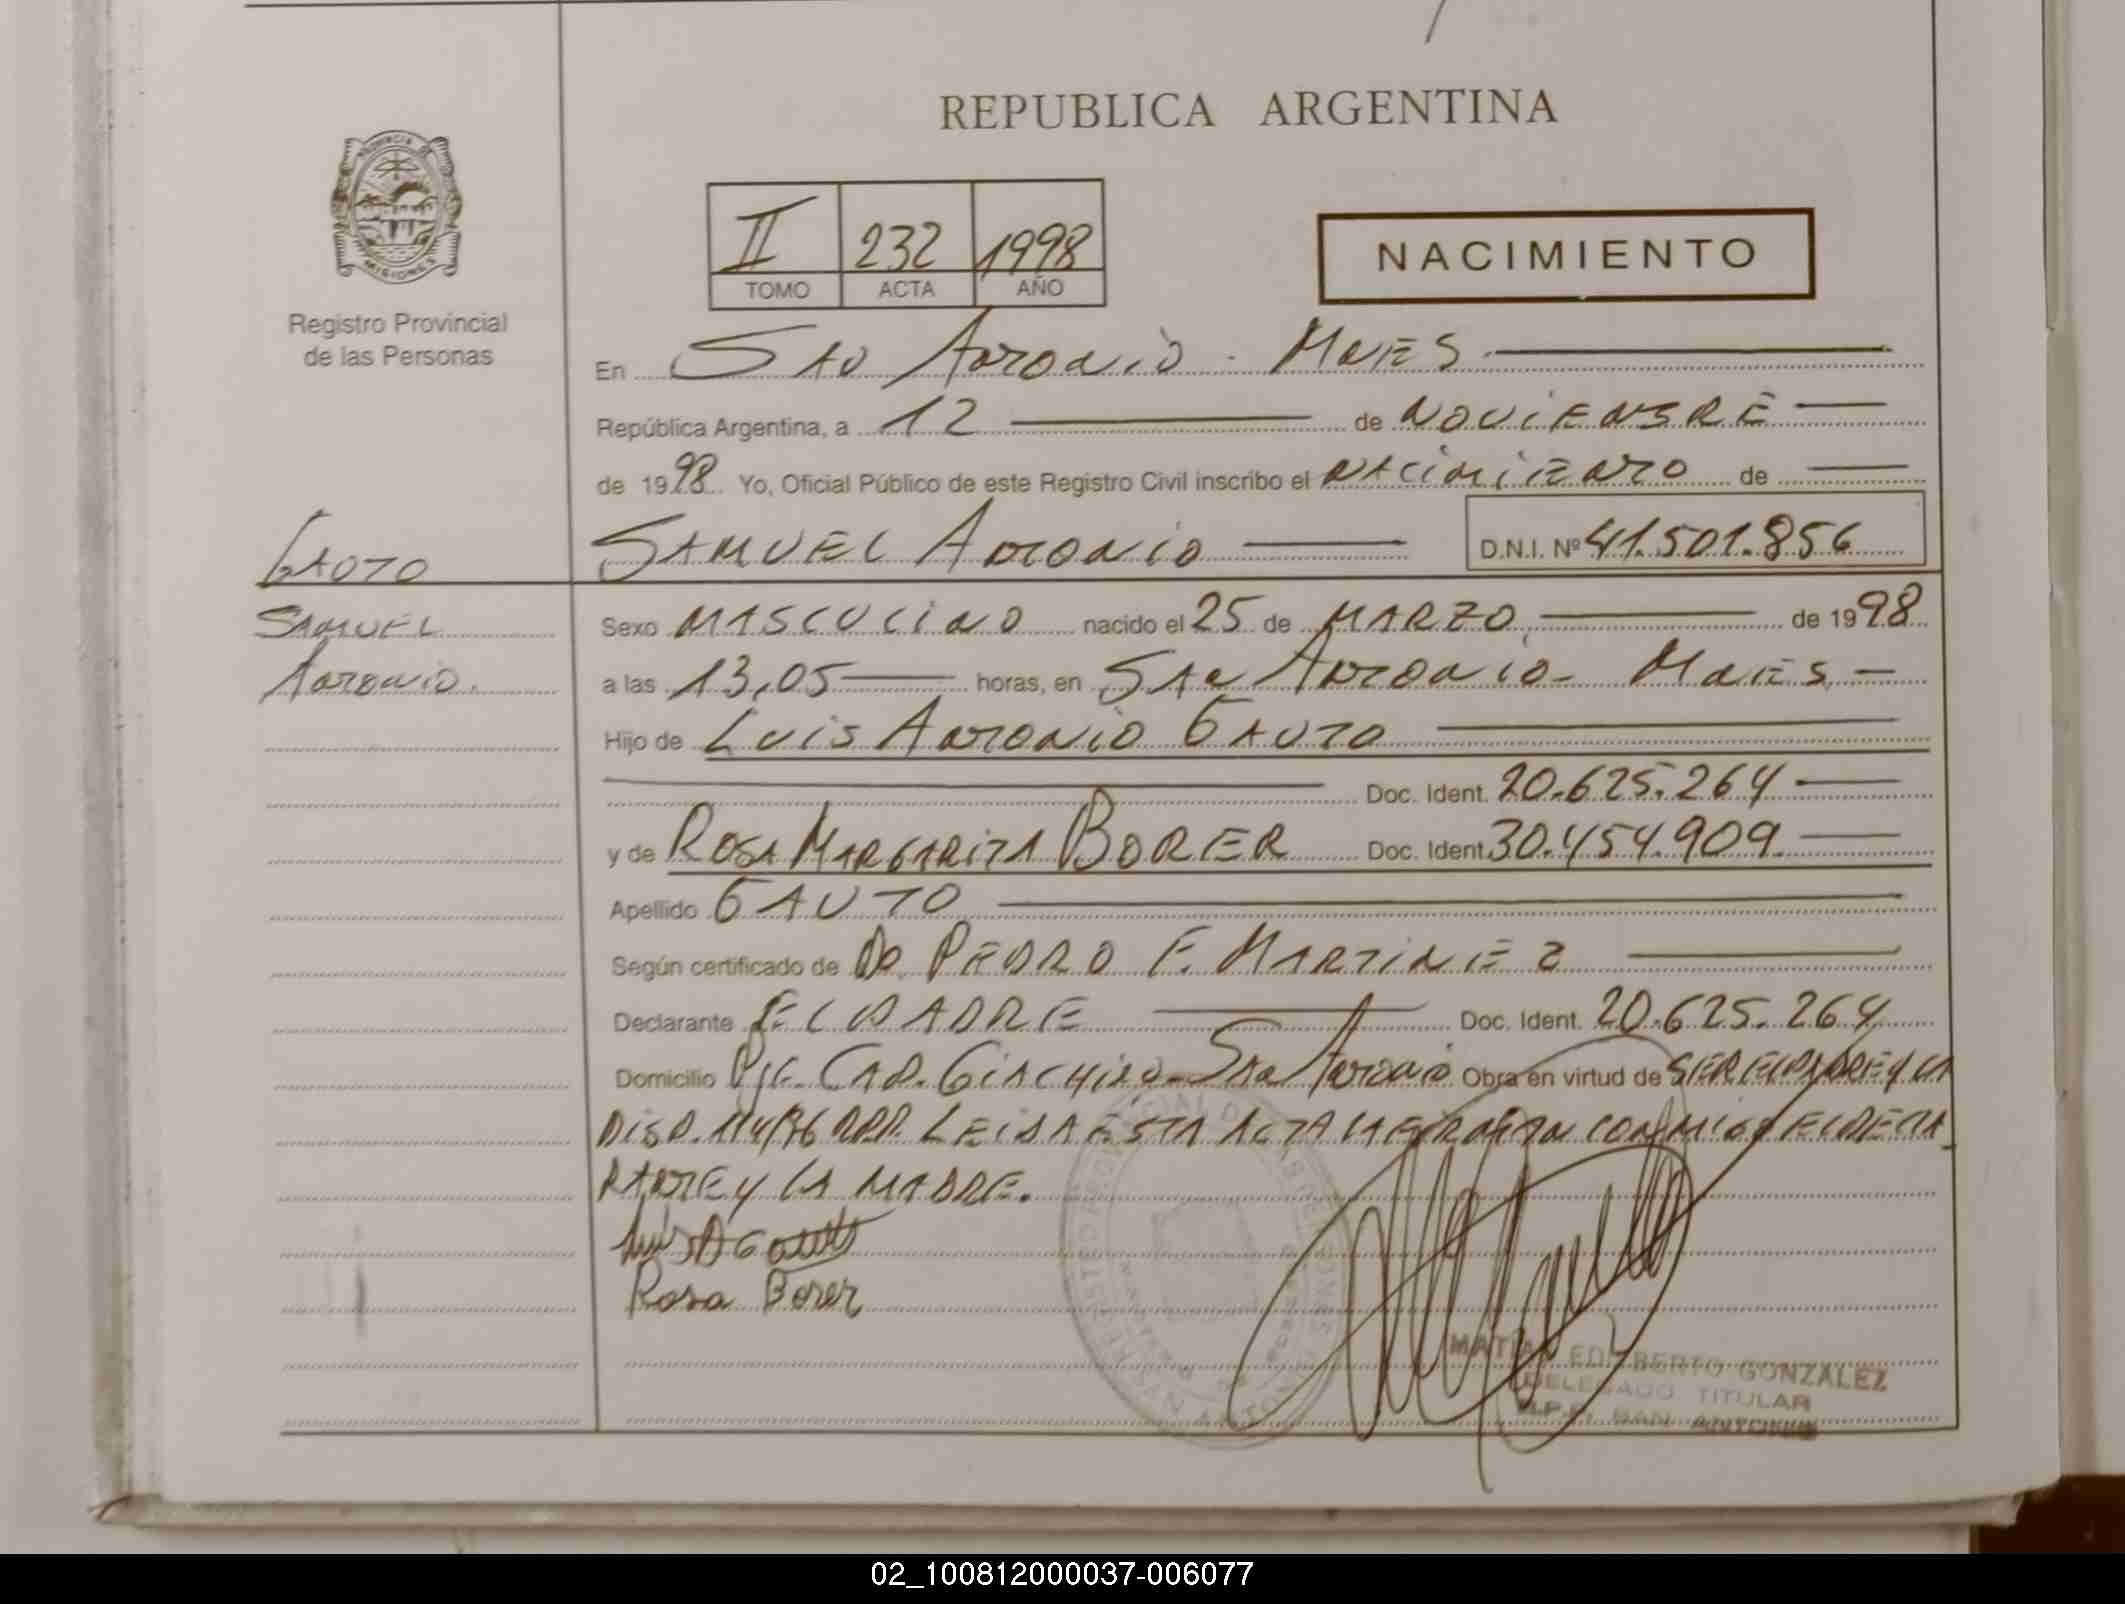 REPUBLICA ARGENTINA
PROVINCIA DE
MISIONES
Registro Provincial
de las Personas
II 232 1998
TOMO ACTA AÑO
NACIMIENTO
En San Antonio - Mnes
República Argentina, a 12 de Noviembre
de 1998 Yo, Oficial Público de este Registro Civil inscribo el nacimiento de
Gauto
Samuel
Antonio.
Samuel Antonio D.N.I. Nº 41.501.856
Sexo masculino nacido el 25 de marzo de 1998
a las 13,05 horas, en San Antonio - Mnes
Hijo de Luis Antonio Gauto
Doc. Ident. 20.625.264
y de Rosa Margarita Borer Doc. Ident 30.454.909
Apellido Gauto
Según certificado de Dr. Pedro F. Martinez
Declarante El padre Doc. Ident. 20.625.264
Domicilio Pje. Cap. Giachino - San Antonio Obra en virtud de ser el padre y la
Disp. 114/96 RPP. Leida ésta acta la firman conmigo el decla-
rante y la madre.
Luis A Gauto
Rosa Borer
MATIAS EDILBERTO GONZALEZ
DELEGADO TITULAR
R.P.P. SAN ANTONIO
02_100812000037-006077